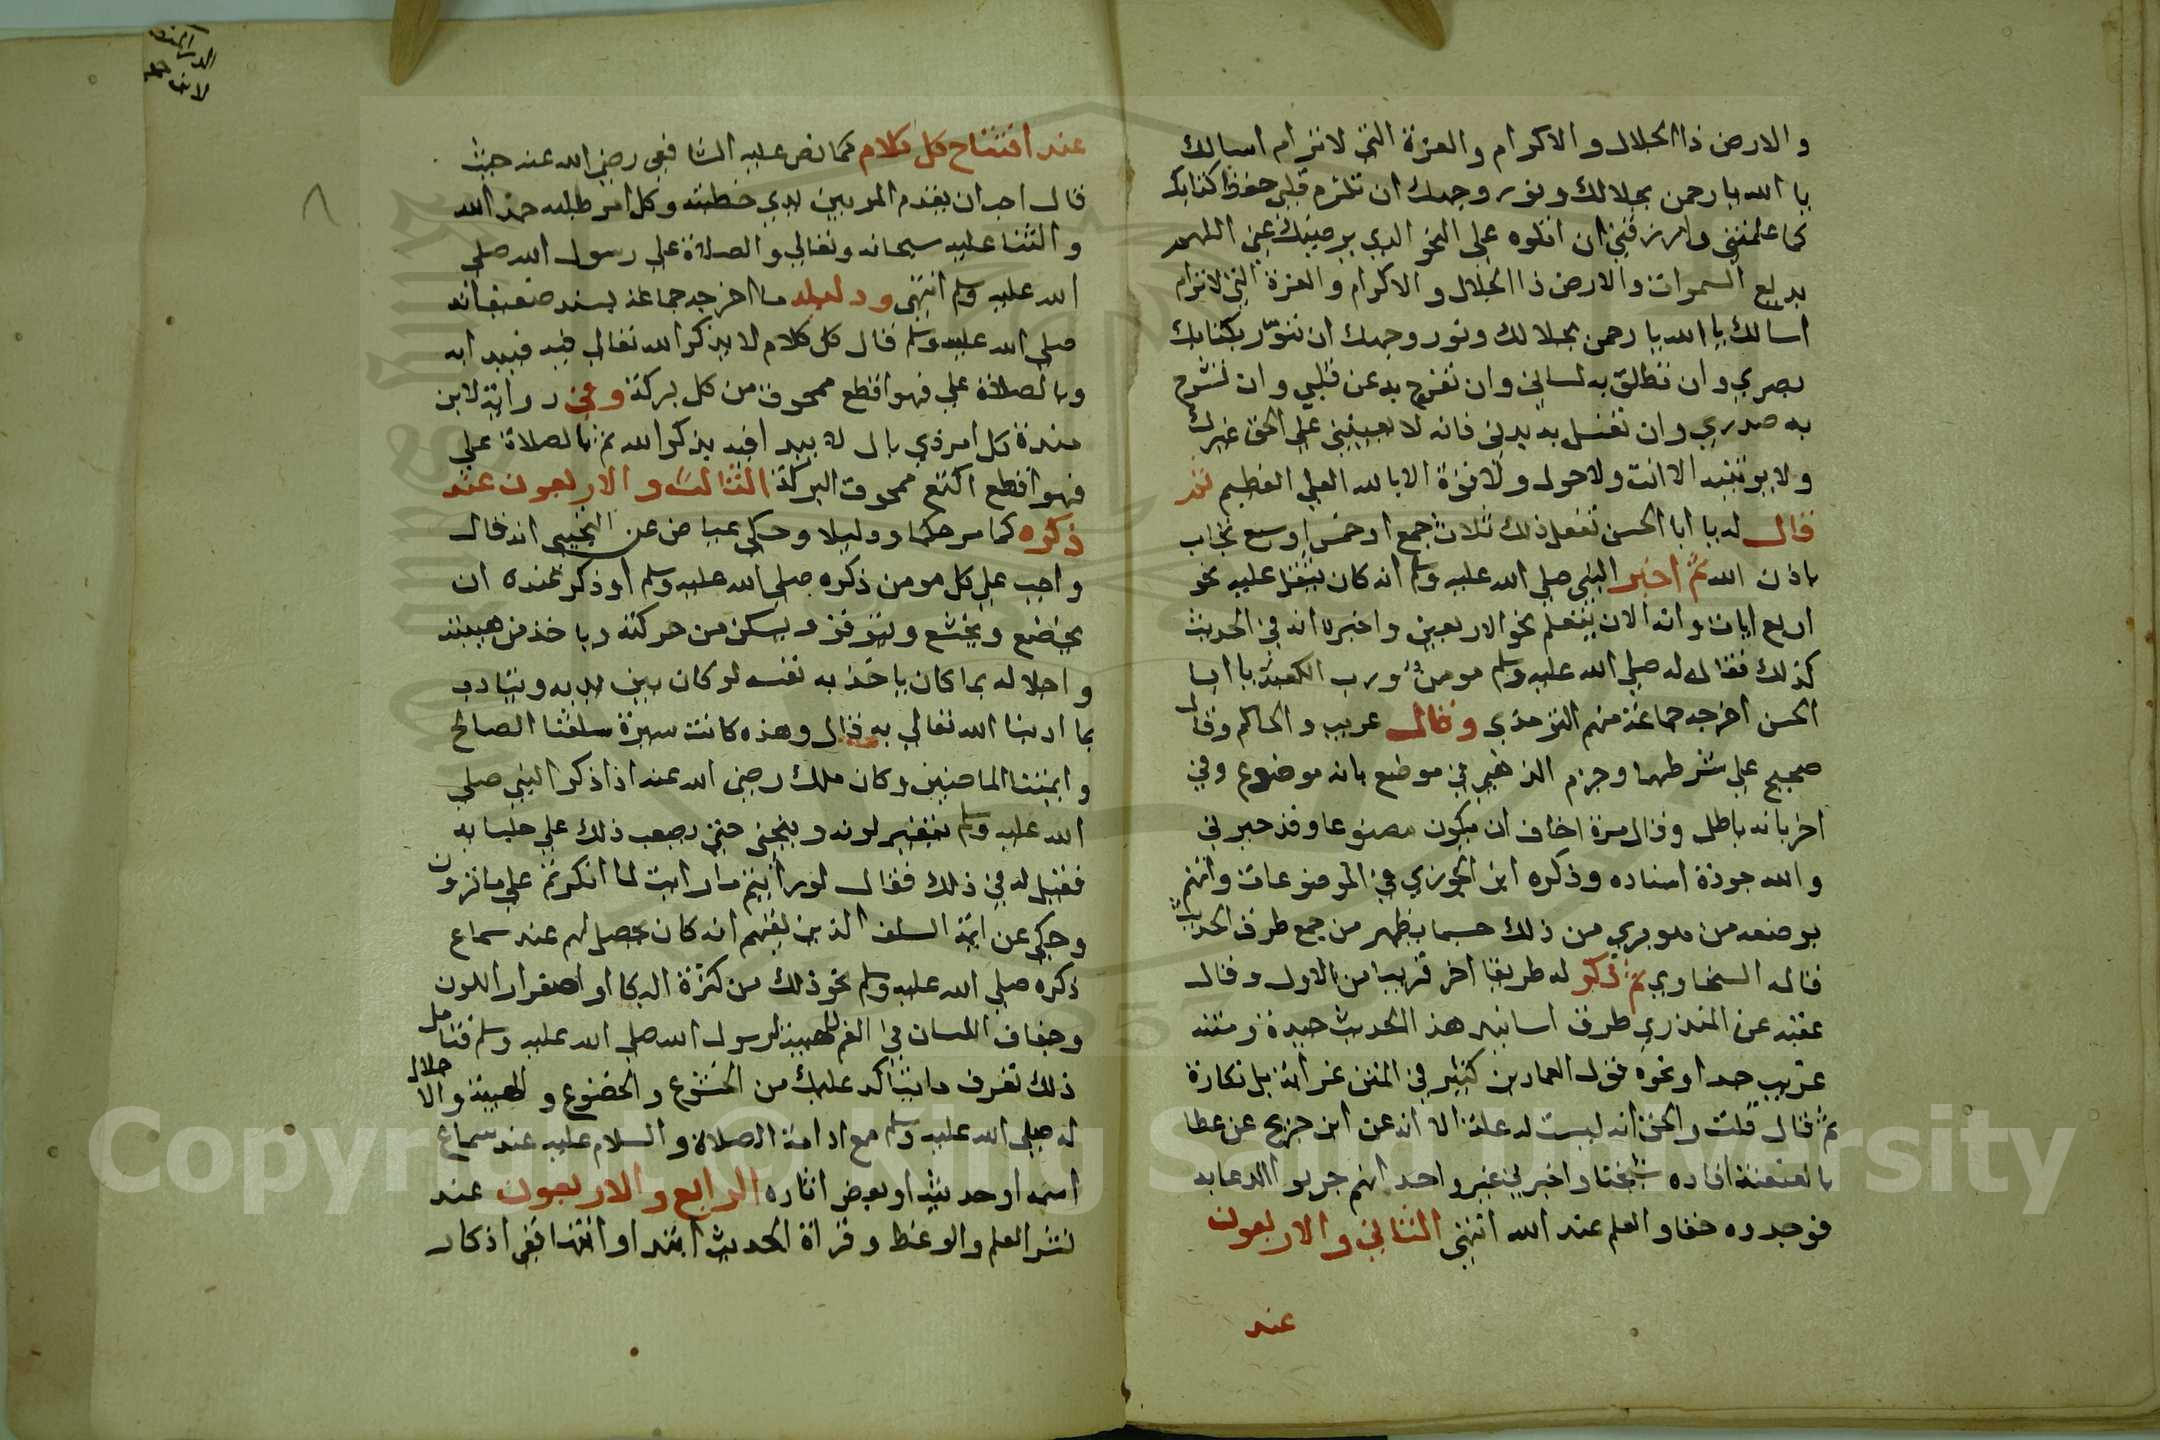 والارض ذا الجلال والاكرام والعزة التي لا ترام اسالك
يا الله يا رحمن بجلالك ونور وجهك ان تلزم قلبي حفظ كتابك
كما علمتني وارزقني ان اتلوه على النحو الذي يرضيك عني اللهم
بديع السموات والارض ذا الجلال والاكرام والعزة التي لا ترام
اسالك يا الله يا رحمن بجلالك ونور وجهك ان تنور بكتابك
بصري وان تطلق به لساني وان تفرج به عن قلبي وان تشرح
به صدري وان تغسل به بدني فانه لا يعينني على الحق غيرك
ولا يوتيه الا انت ولا حول ولا قوة الا بالله العلي العظيم ثم
قال له يا ابا الحسن تفعل ذلك ثلاث جمع او خمس او سبع تجاب
باذن الله ثم اخبر النبي صلى الله عليه وسلم انه كان يثقل عليه نحو
اربع ايات وانه الان يتعلم نحو الاربعين واخبره انه في الحديث
كذلك فقال له صلى الله عليه وسلم مومن ورب الكعبة يا ابا
الحسن اخرجه جماعة منهم الترمذي وقال غريب والحاكم وقال
صحيح على شرطهما وجزم الذهبي في موضع بانه موضوع وفي
اخر بانه باطل وقال مرة اخاف ان يكون مصنوعا وقد حيرني
والله جودة اسناده وذكره ابن الجوزي في الموضوعات واتهم
بوضعه من هو بري من ذلك حسبما يظهر من جمع طرق الحديث
قاله السخاوي ثم ذكر له طريقا اخر قريبا من الاول وقال
عقبه عن المنذري طرق اسانيد هذا الحديث جيدة ومتنه
غريب جدا ونحوه قول العماد بن كثير في المتن غرابة بل نكارة
ثم قال قلت والحق انه ليست له علة الا انه عن ابن جريج عن عطا
بالعنعنة افاده شيخنا واخبرني غير واحد انهم جربوا الدعا به
فوجدوه حقا والعلم عند الله انتهى الثاني والاربعون
عند
عند افتتاح كل كلام كما نص عليه الشافعي رضي الله عنه حيث
قال احب ان يقدم المرء بين يدي خطبته وكل امر طلبه حمد الله
والثنا عليه سبحانه وتعالى والصلاة على رسول الله صلى
الله عليه وسلم انتهى ودليله ما اخرجه جماعة بسند ضعيف انه
صلى الله عليه وسلم قال كل كلام لا يذكر الله تعالى فيه فيبدا به
وبالصلاة علي فهو اقطع ممحوق من كل بركة وفي رواية لابن
مندة كل امر ذي بال لا يبدا فيه بذكر الله ثم بالصلاة علي
فهو اقطع اكتع ممحوق البركة الثالث والاربعون عند
ذكره كما مر حكما ودليلا وحكى عياض عن التجيبي انه قال
واجب على كل مومن ذكره صلى الله عليه وسلم او ذكر عنده ان
يخضع ويخشع ويتوقر ويسكن من حركته وياخذ من هيبته
واجلاله بما كان ياخذ به نفسه لو كان بين يديه ويتادب
بما ادبنا الله تعالى به قال وهذه كانت سيرة سلفنا الصالح
وايمتنا الماضين وكان ملك رضي الله عنه اذا ذكر النبي صلى
الله عليه وسلم يتغير لونه وينحني حتى يصعب ذلك على جلسايه
فقيل له في ذلك فقال لو رايتم ما رايت لما انكرتم علي ما ترون
وحكى عن ايمة السلف الذين لقيهم انه كان يحصل لهم عند سماع
ذكره صلى الله عليه وسلم نحو ذلك من كثرة البكا او اصفرار اللون
وجفاف اللسان في الفم لهيبة لرسول الله صلى الله عليه وسلم فتامل
ذلك تعرف ما يتاكد عليك من الخشوع والخضوع والهيبة والاجلال
له صلى الله عليه وسلم مع ادامة الصلاة والسلام عليه عند سماع
اسمه او حديثه او بعض اثاره الرابع والاربعون عند
نشر العلم والوعظ وقراة الحديث ابتدا وانتها ففي اذكار